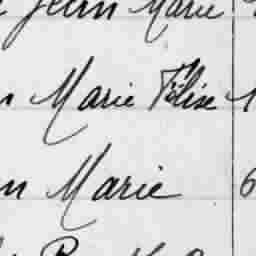 Jean Marie
n Marie Félise 1
n Marie 6